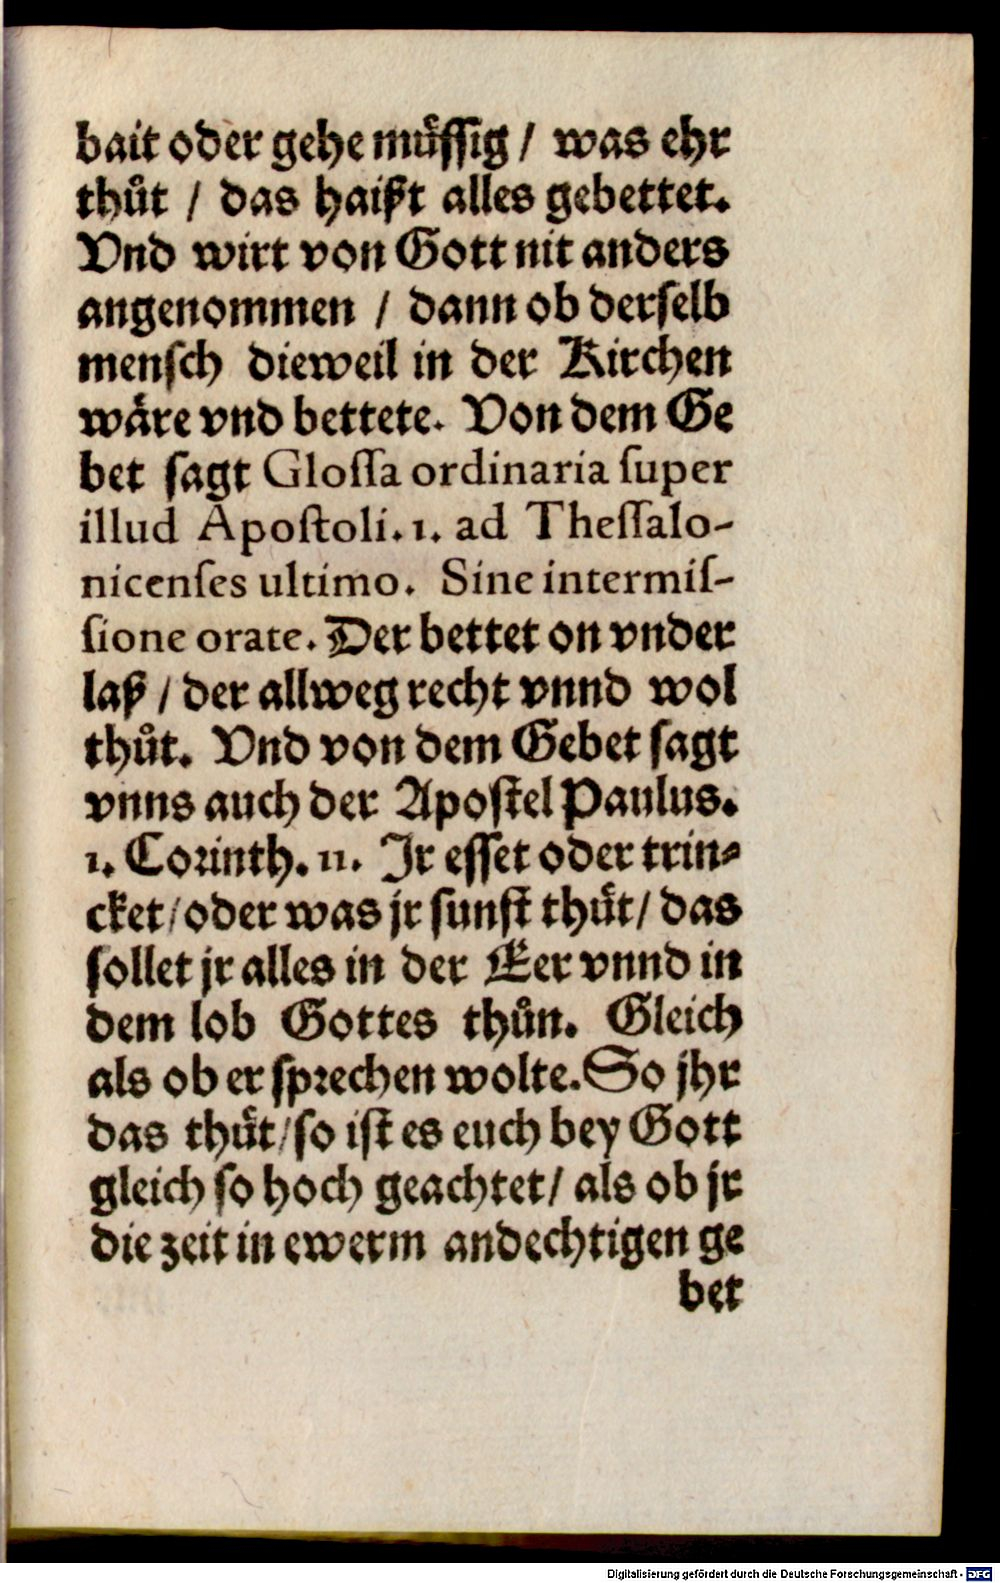 bait oder gehe muͤſſig / was ehr
thuͦt / das haiſt alles gebettet.
Vnd wirt von Gott nit anders
angenommen / dann ob derſelb
menſch dieweil in der Kirchen
waͤre vnd bettete. Von dem Ge
bet ſagt Gloſſa ordinaria ſuper
illud Apoſtoli. 1. ad Theſſalo-
nicenſes ultimo. Sine intermiſ-
ſione orate. Der bettet on vnder
laß / der allweg recht vnnd wol
thuͦt. Vnd von dem Gebet ſagt
vnns auch der Apoſtel Paulus.
1. Corinth. 11. Jr eſſet oder trin⸗
cket / oder was jr ſunſt thuͤt / das
ſollet jr alles in der Eer vnnd in
dem lob Gottes thuͦn. Gleich
als ob er ſprechen wolte. So jhr
das thuͤt / ſo iſt es euch bey Gott
gleich ſo hoch geachtet / als ob jr
die zeit in ewerm andechtigen ge
bet
Digitalisierung gefördert durch die Deutsche Forschungsgemeinschaft - DFG